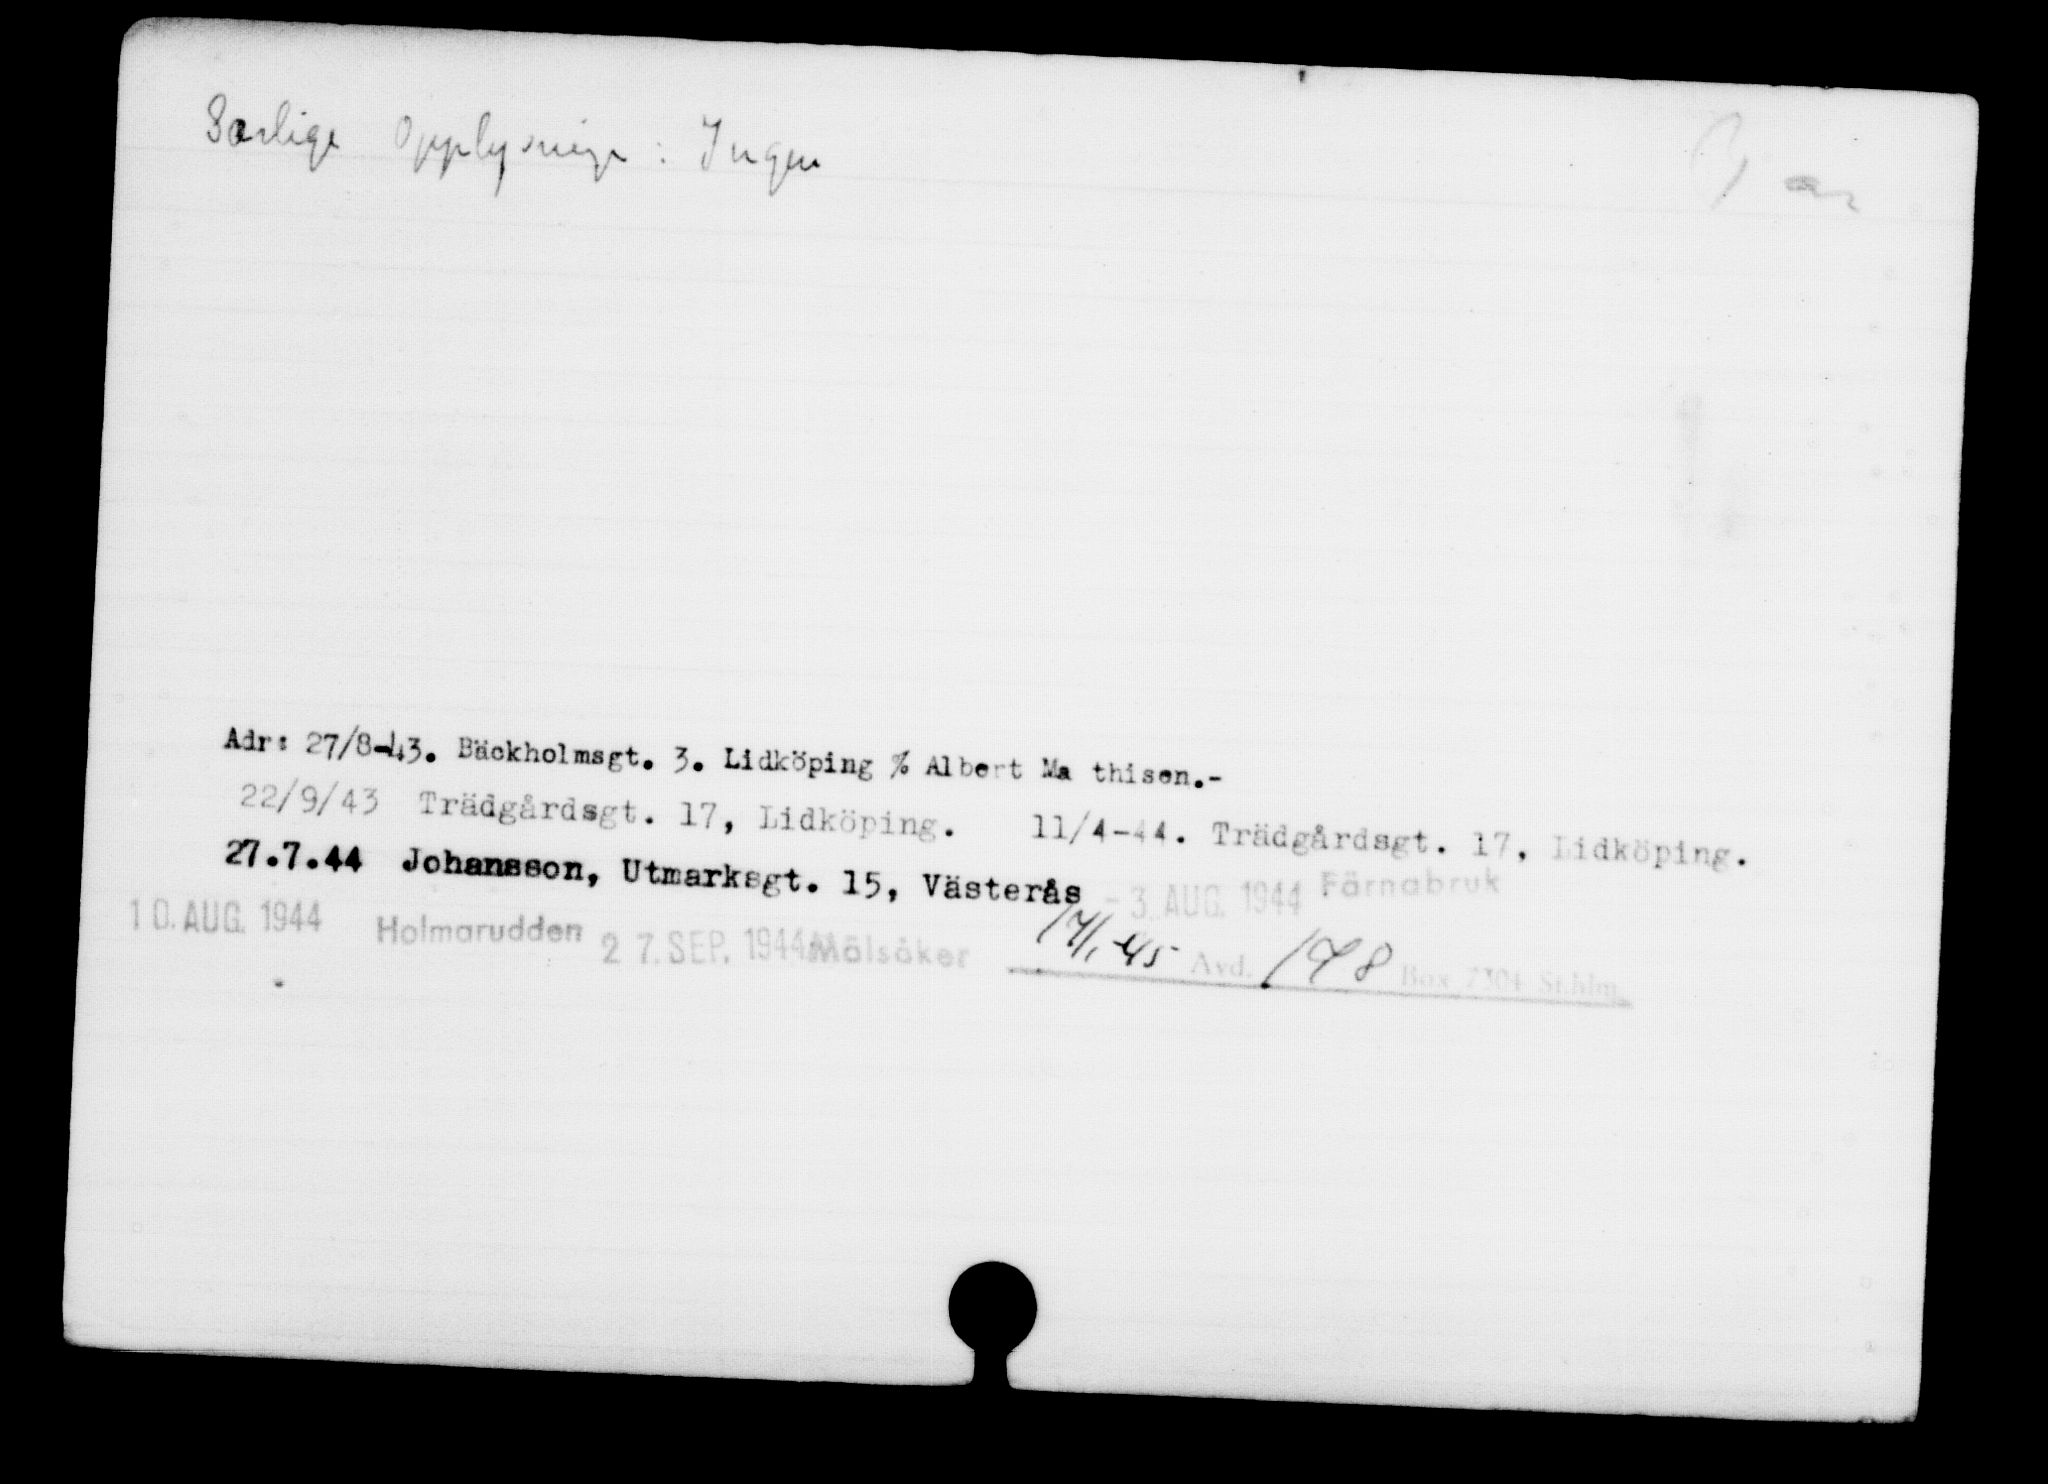 Særlige Opplysninger: Ingen
Adr: 27/8-43. Bäckholmsgt. 3. Lidköping % Albert Ma thisen.-
22/9/43 Trädgårdsgt. 17, Lidköping. 11/4-44. Trädgårdsgt. 17, Lidköping.
27.7.44 Johansson, Utmarksgt. 15, Västerås - 3. AUG. 1944 Färnabruk
10. AUG. 1944 Holmarudden 27. SEP. 1944 Mälsåker 17/1-45 Avd. 148 Box 7304 St.hlm.